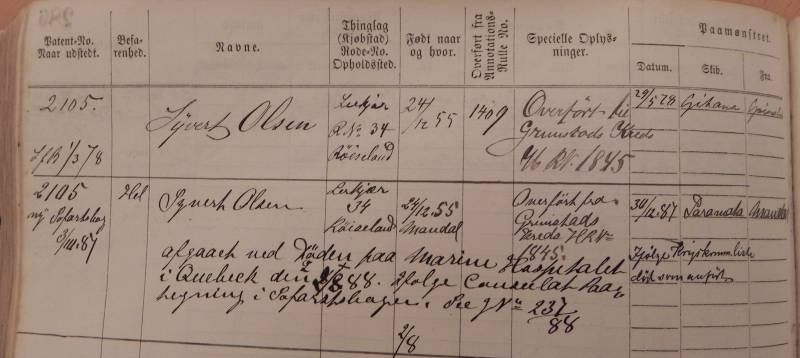 Patent-No.
Naar udstedt.
Befa-
renhed.
Navne.
Thinglag
(Kjøbstad)
Rode-No.
Opholdssted.
Født naar
og hvor.
Overført fra
Annotations-
Rulle No.
Specielle Oplys-
ninger.
Paamønstret.
Datum.
Skib.
Fra.
2105.
1/3 78
Syvert Olsen
R.No 34
Røiseland
24/12 55
1409
Overført til
Grimstads Kreds
1845
29/5 78
2105
ny Søfartsbog
87
Syvert Olsen
34
Røiseland
24/12.55
Mandal
Overført fra
Grimstads
Kreds H.R.No
1845.
30/12.87
Paramata
Mandal
afgaaet ved Døden paa Marine Hospitalet
i Quebeck den 88. Ifølge Consulat Paa-
tegning i Søfartsbogen. See J No 237/88
død som anført
2/8